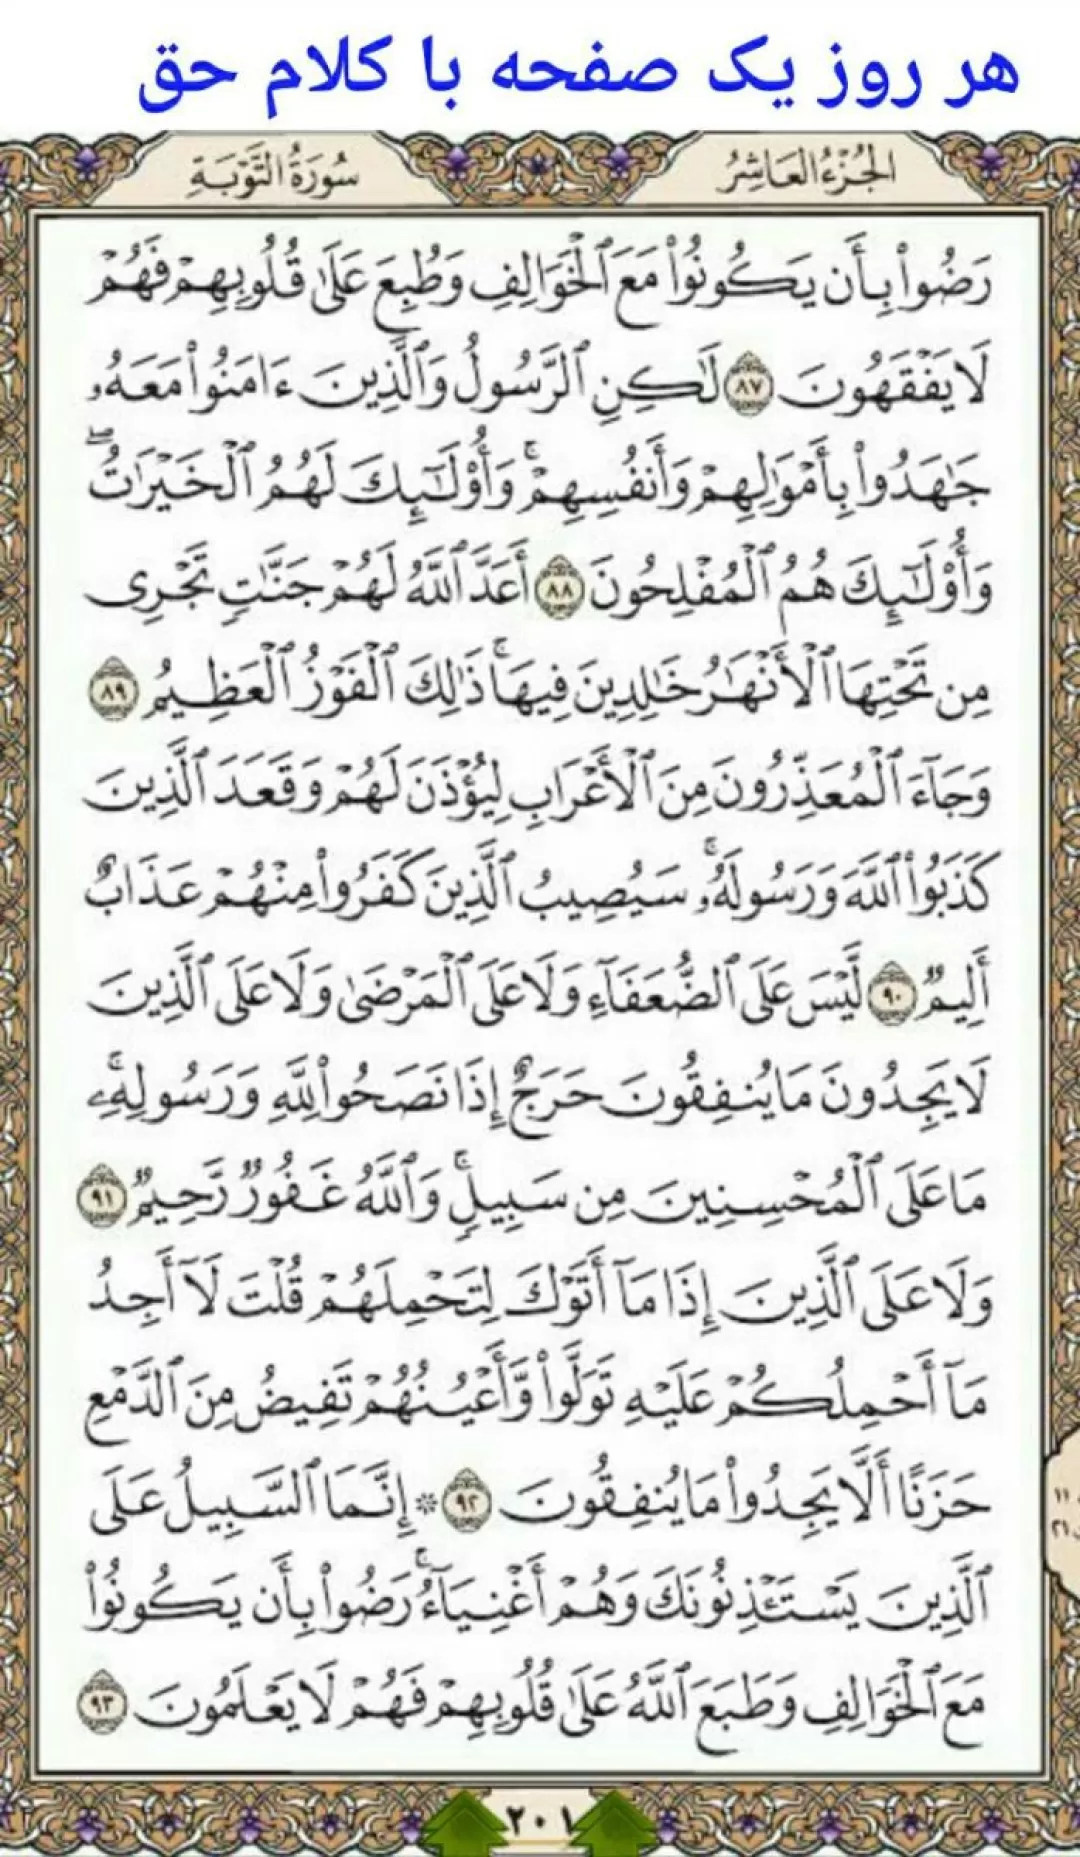 هر روز یک صفحه با کلام حق
الجُزْءُ العَاشِرُ
سُورَةُ التَّوْبَةِ
رَضُوا۟ بِأَن يَكُونُوا۟ مَعَ ٱلْخَوَالِفِ وَطُبِعَ عَلَىٰ قُلُوبِهِمْ فَهُمْ
لَا يَفْقَهُونَ ٨٧ لَٰكِنِ ٱلرَّسُولُ وَٱلَّذِينَ ءَامَنُوا۟ مَعَهُۥ
جَٰهَدُوا۟ بِأَمْوَٰلِهِمْ وَأَنفُسِهِمْ ۚ وَأُو۟لَٰٓئِكَ لَهُمُ ٱلْخَيْرَٰتُ ۖ
وَأُو۟لَٰٓئِكَ هُمُ ٱلْمُفْلِحُونَ ٨٨ أَعَدَّ ٱللَّهُ لَهُمْ جَنَّٰتٍ تَجْرِى
مِن تَحْتِهَا ٱلْأَنْهَٰرُ خَٰلِدِينَ فِيهَا ۚ ذَٰلِكَ ٱلْفَوْزُ ٱلْعَظِيمُ ٨٩
وَجَآءَ ٱلْمُعَذِّرُونَ مِنَ ٱلْأَعْرَابِ لِيُؤْذَنَ لَهُمْ وَقَعَدَ ٱلَّذِينَ
كَذَبُوا۟ ٱللَّهَ وَرَسُولَهُۥ ۚ سَيُصِيبُ ٱلَّذِينَ كَفَرُوا۟ مِنْهُمْ عَذَابٌ
أَلِيمٌ ٩٠ لَّيْسَ عَلَى ٱلضُّعَفَآءِ وَلَا عَلَى ٱلْمَرْضَىٰ وَلَا عَلَى ٱلَّذِينَ
لَا يَجِدُونَ مَا يُنفِقُونَ حَرَجٌ إِذَا نَصَحُوا۟ لِلَّهِ وَرَسُولِهِۦ ۚ
مَا عَلَى ٱلْمُحْسِنِينَ مِن سَبِيلٍ ۚ وَٱللَّهُ غَفُورٌ رَّحِيمٌ ٩١
وَلَا عَلَى ٱلَّذِينَ إِذَا مَآ أَتَوْكَ لِتَحْمِلَهُمْ قُلْتَ لَآ أَجِدُ
مَآ أَحْمِلُكُمْ عَلَيْهِ تَوَلَّوا۟ وَّأَعْيُنُهُمْ تَفِيضُ مِنَ ٱلدَّمْعِ
حَزَنًا أَلَّا يَجِدُوا۟ مَا يُنفِقُونَ ٩٢ ۞ إِنَّمَا ٱلسَّبِيلُ عَلَى
ٱلَّذِينَ يَسْتَـْٔذِنُونَكَ وَهُمْ أَغْنِيَآءُ ۚ رَضُوا۟ بِأَن يَكُونُوا۟
مَعَ ٱلْخَوَالِفِ وَطَبَعَ ٱللَّهُ عَلَىٰ قُلُوبِهِمْ فَهُمْ لَا يَعْلَمُونَ ٩٣
٢٠١